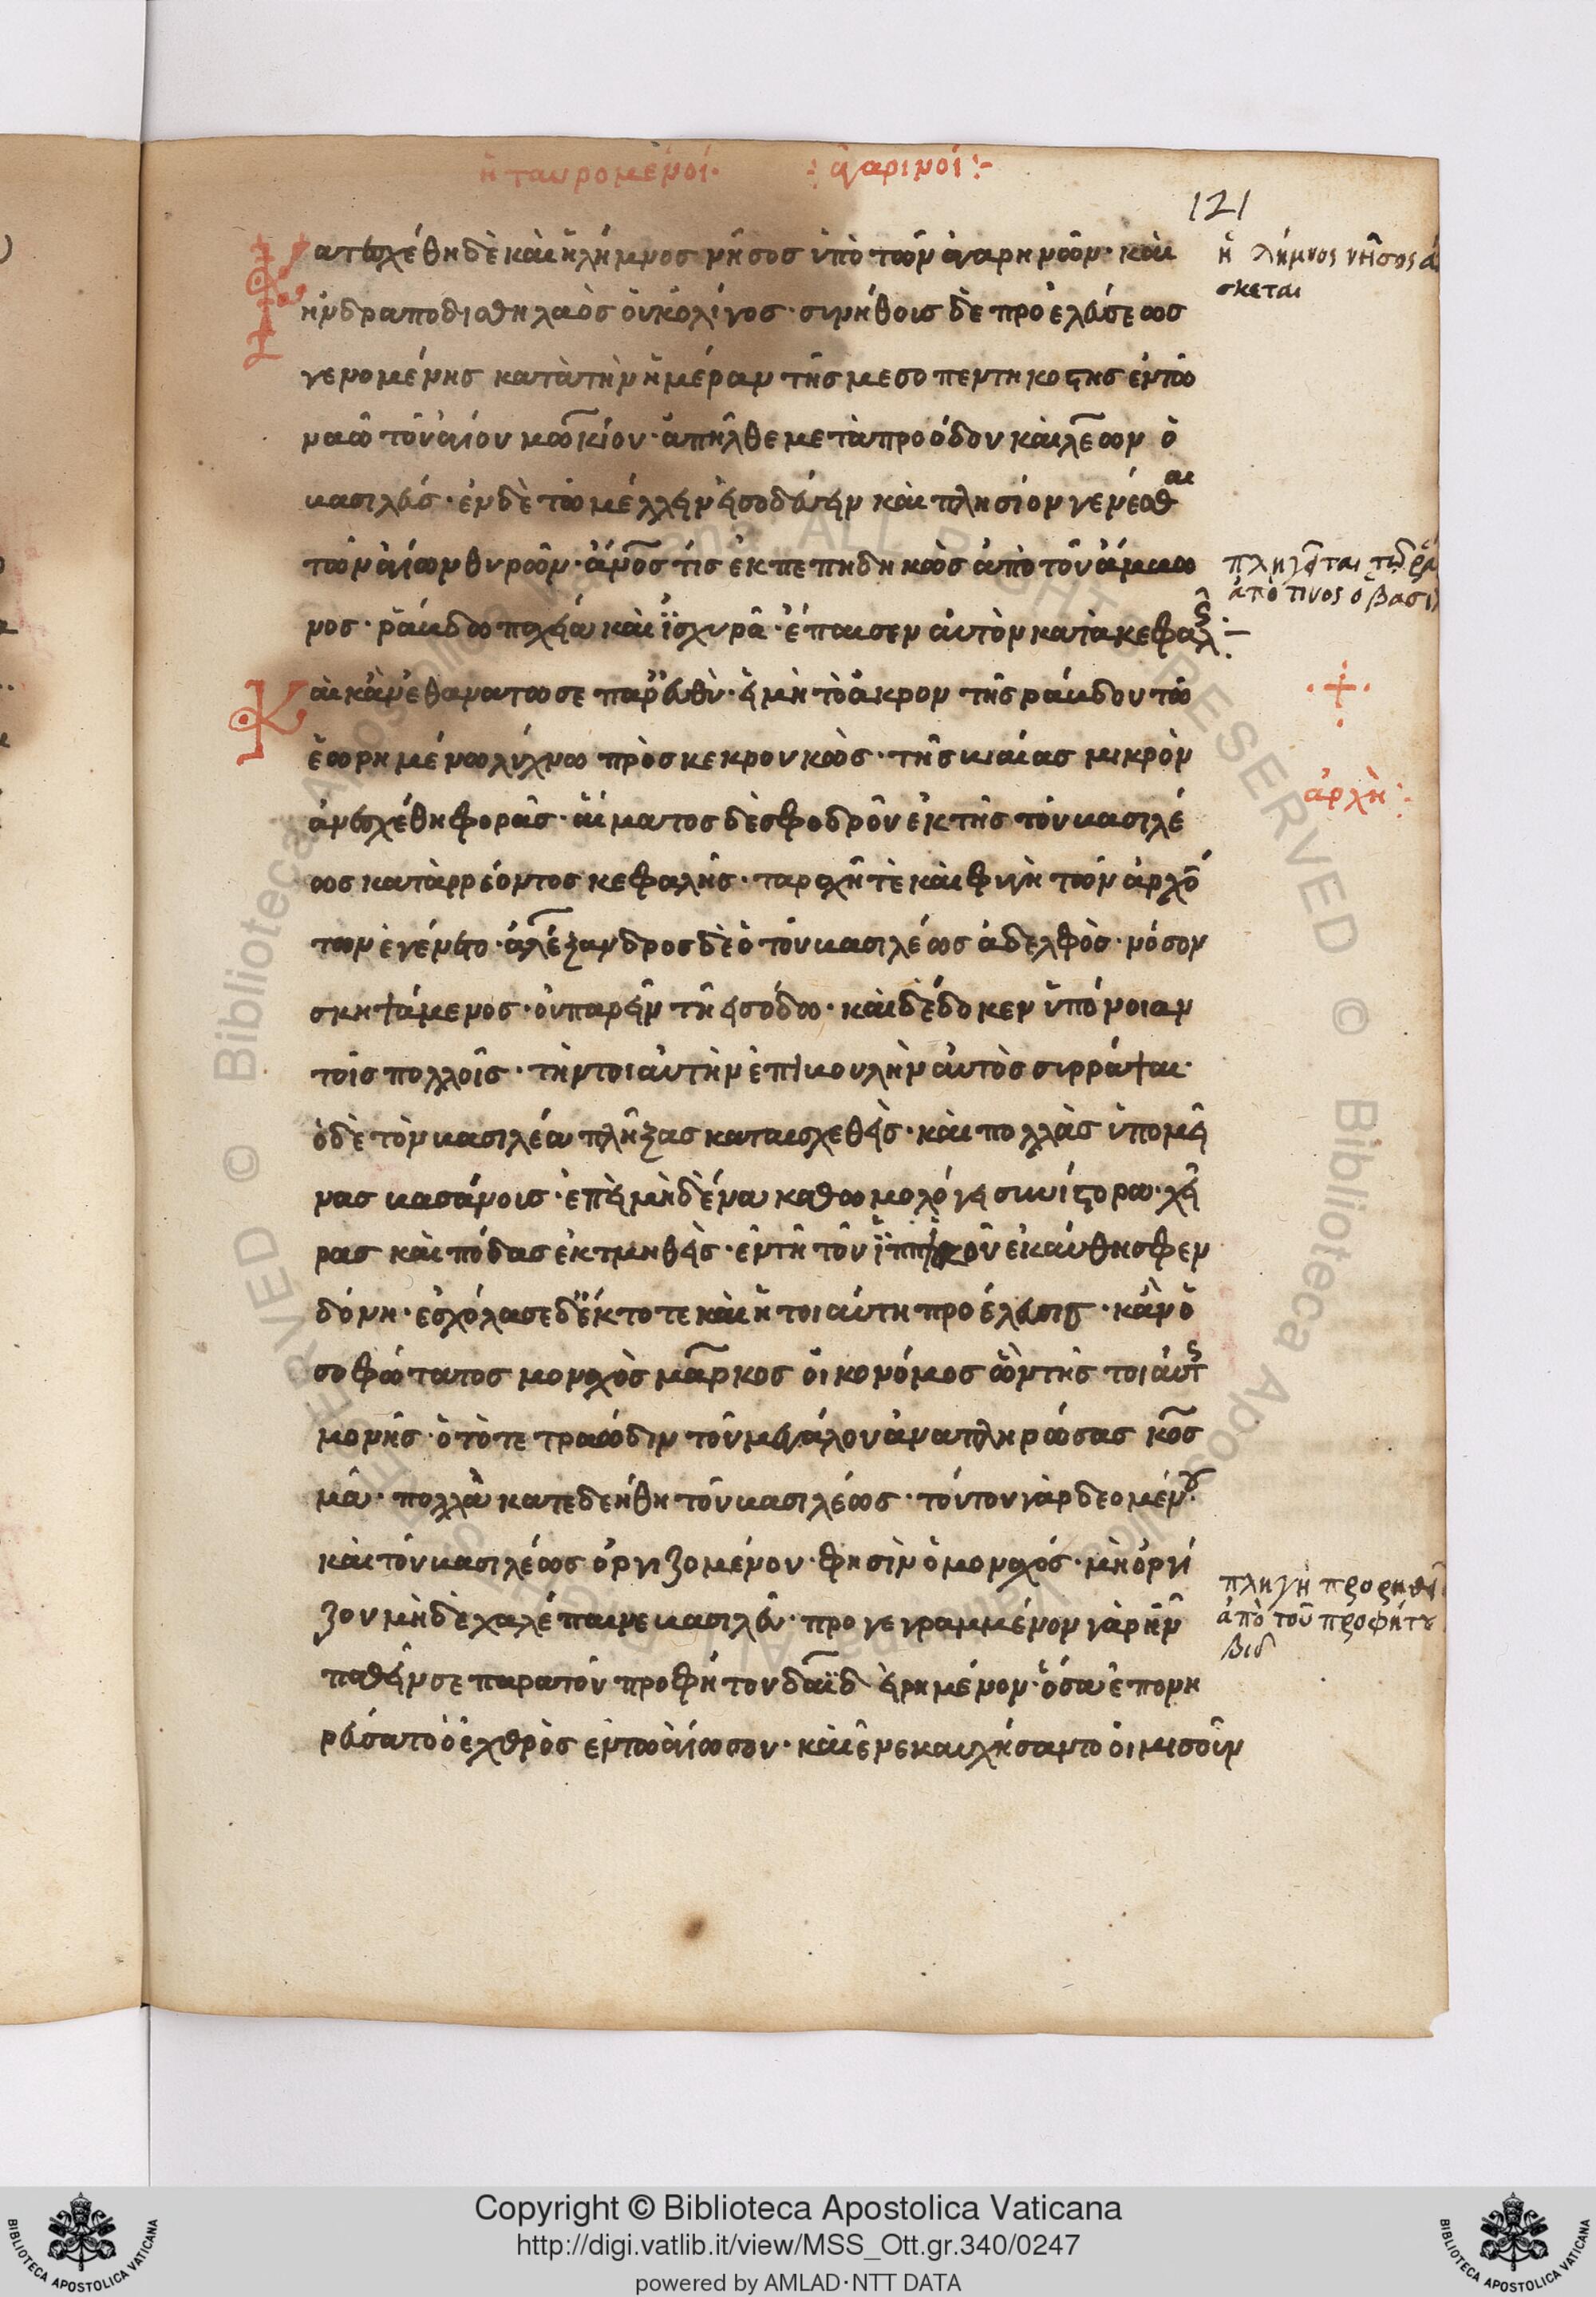 ἢ ταυρομένοι· : ἀγαρινοί :-
121
Κατεσχέθη δὲ καὶ ἡ λήμνος νῆσος ὑπὸ τῶν ἀγαρηνῶν· καὶ
ἠνδραποδίσθη λαὸς οὐκ ὀλίγος· συνήθοις δὲ προελεύσεως
γενομένης κατὰ τὴν ἡμέραν τῆς μεσοπεντηκοστῆς ἐν τῶ
ναῶ τοῦ ἁγίου μωκίου· ἀπῆλθε μετὰ προόδου καὶ λέων ὁ
βασιλεύς· ἐν δὲ τῶ μέλλειν εἰσοδεύειν καὶ πλησίον γενέσθαι
τῶν ἁγίων θυρῶν· ἄνος τίς ἐκπεπηδηκὼς ἀπὸ τοῦ ἄμβω
νος· ράβδω παχεία καὶ ἰσχυρᾶ· ἔπαισεν αὐτὸν κατὰ κεφαλῆς :–
Καὶ κἂν ἐθανάτωσε παρευθὺ· εἰ μὴ τὸ ἄκρον τῆς ράβδου τῶ
ἐωρημένω λύχνω προσκεκρουκὼς· τῆς βιαίας μικρὸν
ἀνεσχέθη φορᾶς· αἵματος δὲ σφοδροῦ ἐκ τῆς τοῦ βασιλέ
ως καταρρέοντος κεφαλῆς· ταραχῆ τὲ καὶ φυγὴ τῶν ἀρχό
των ἐγένετο· ἀλέξανδρος δὲ ὁ τοῦ βασιλέως ἀδελφὸς· νόσον
σκηψάμενος· οὐ παρῆν τῆ εἰσόδω· καὶ δέδοκεν ὑπόνοιαν
τοῖς πολλοῖς· τὴν τοιαύτην ἐπιβουλὴν αὐτὸς συρράψαι·
ὁ δὲ τὸν βασιλέα πλῆξας κατασχεθεὶς· καὶ πολλὰς ὑπομεί
νας βασάνοις· ἐπεὶ μὴδένα καθωμολόγει συνίστορα· χεῖ
ρας καὶ πόδας ἐκτμηθεὶς· ἐν τῆ τοῦ ἱππικοῦ ἐκαύθη σφεν
δόνη· ἐσχόλασε δὲ ἔκτοτε καὶ ἡ τοιαύτη προέλευσις· κἂν ὁ
σοφώτατος μοναχὸς μάρκος οἰκονόμος ὢν τῆς τοιαύτης
μονῆς· ὁ τὸ τετραώδιν τοῦ μεγάλου ἀναπληρώσας κοσ
μᾶ· πολλὰ κατεδεήθη τοῦ βασιλέως· τούτου γὰρ δεομένου·
καὶ τοῦ βασιλέως ὀργιζομένου· φησὶν ὁ μοναχός· μὴ ὀργί
ζου μὴδὲ χαλέπαινε βασιλεῦ· προγεγραμμένον γὰρ ἦν
παθεῖν σε παρα τοῦ προφήτου δαυΐδ εἰρημένον· ὅσα ἐπονη
ρεύσατο ὁ ἐχθρὸς ἐν τῶ ἁγίω σου· καὶ ἐνεκαυχήσαντο οἱ μισοῦν
ἡ λήμνος νῆσος ἁ
σκεται
πληγᾶται
ἀπό τινος ὁ βασι
·+·
ἀρχὴ :·
πληγὴ προρηθεῖ
ἀπὸ τοῦ προφήτου
βιδ
Copyright © Biblioteca Apostolica Vaticana
http://digi.vatlib.it/view/MSS_Ott.gr.340/0247
powered by AMLAD·NTT DATA
BIBLIOTECA APOSTOLICA VATICANA
BIBLIOTECA APOSTOLICA VATICANA